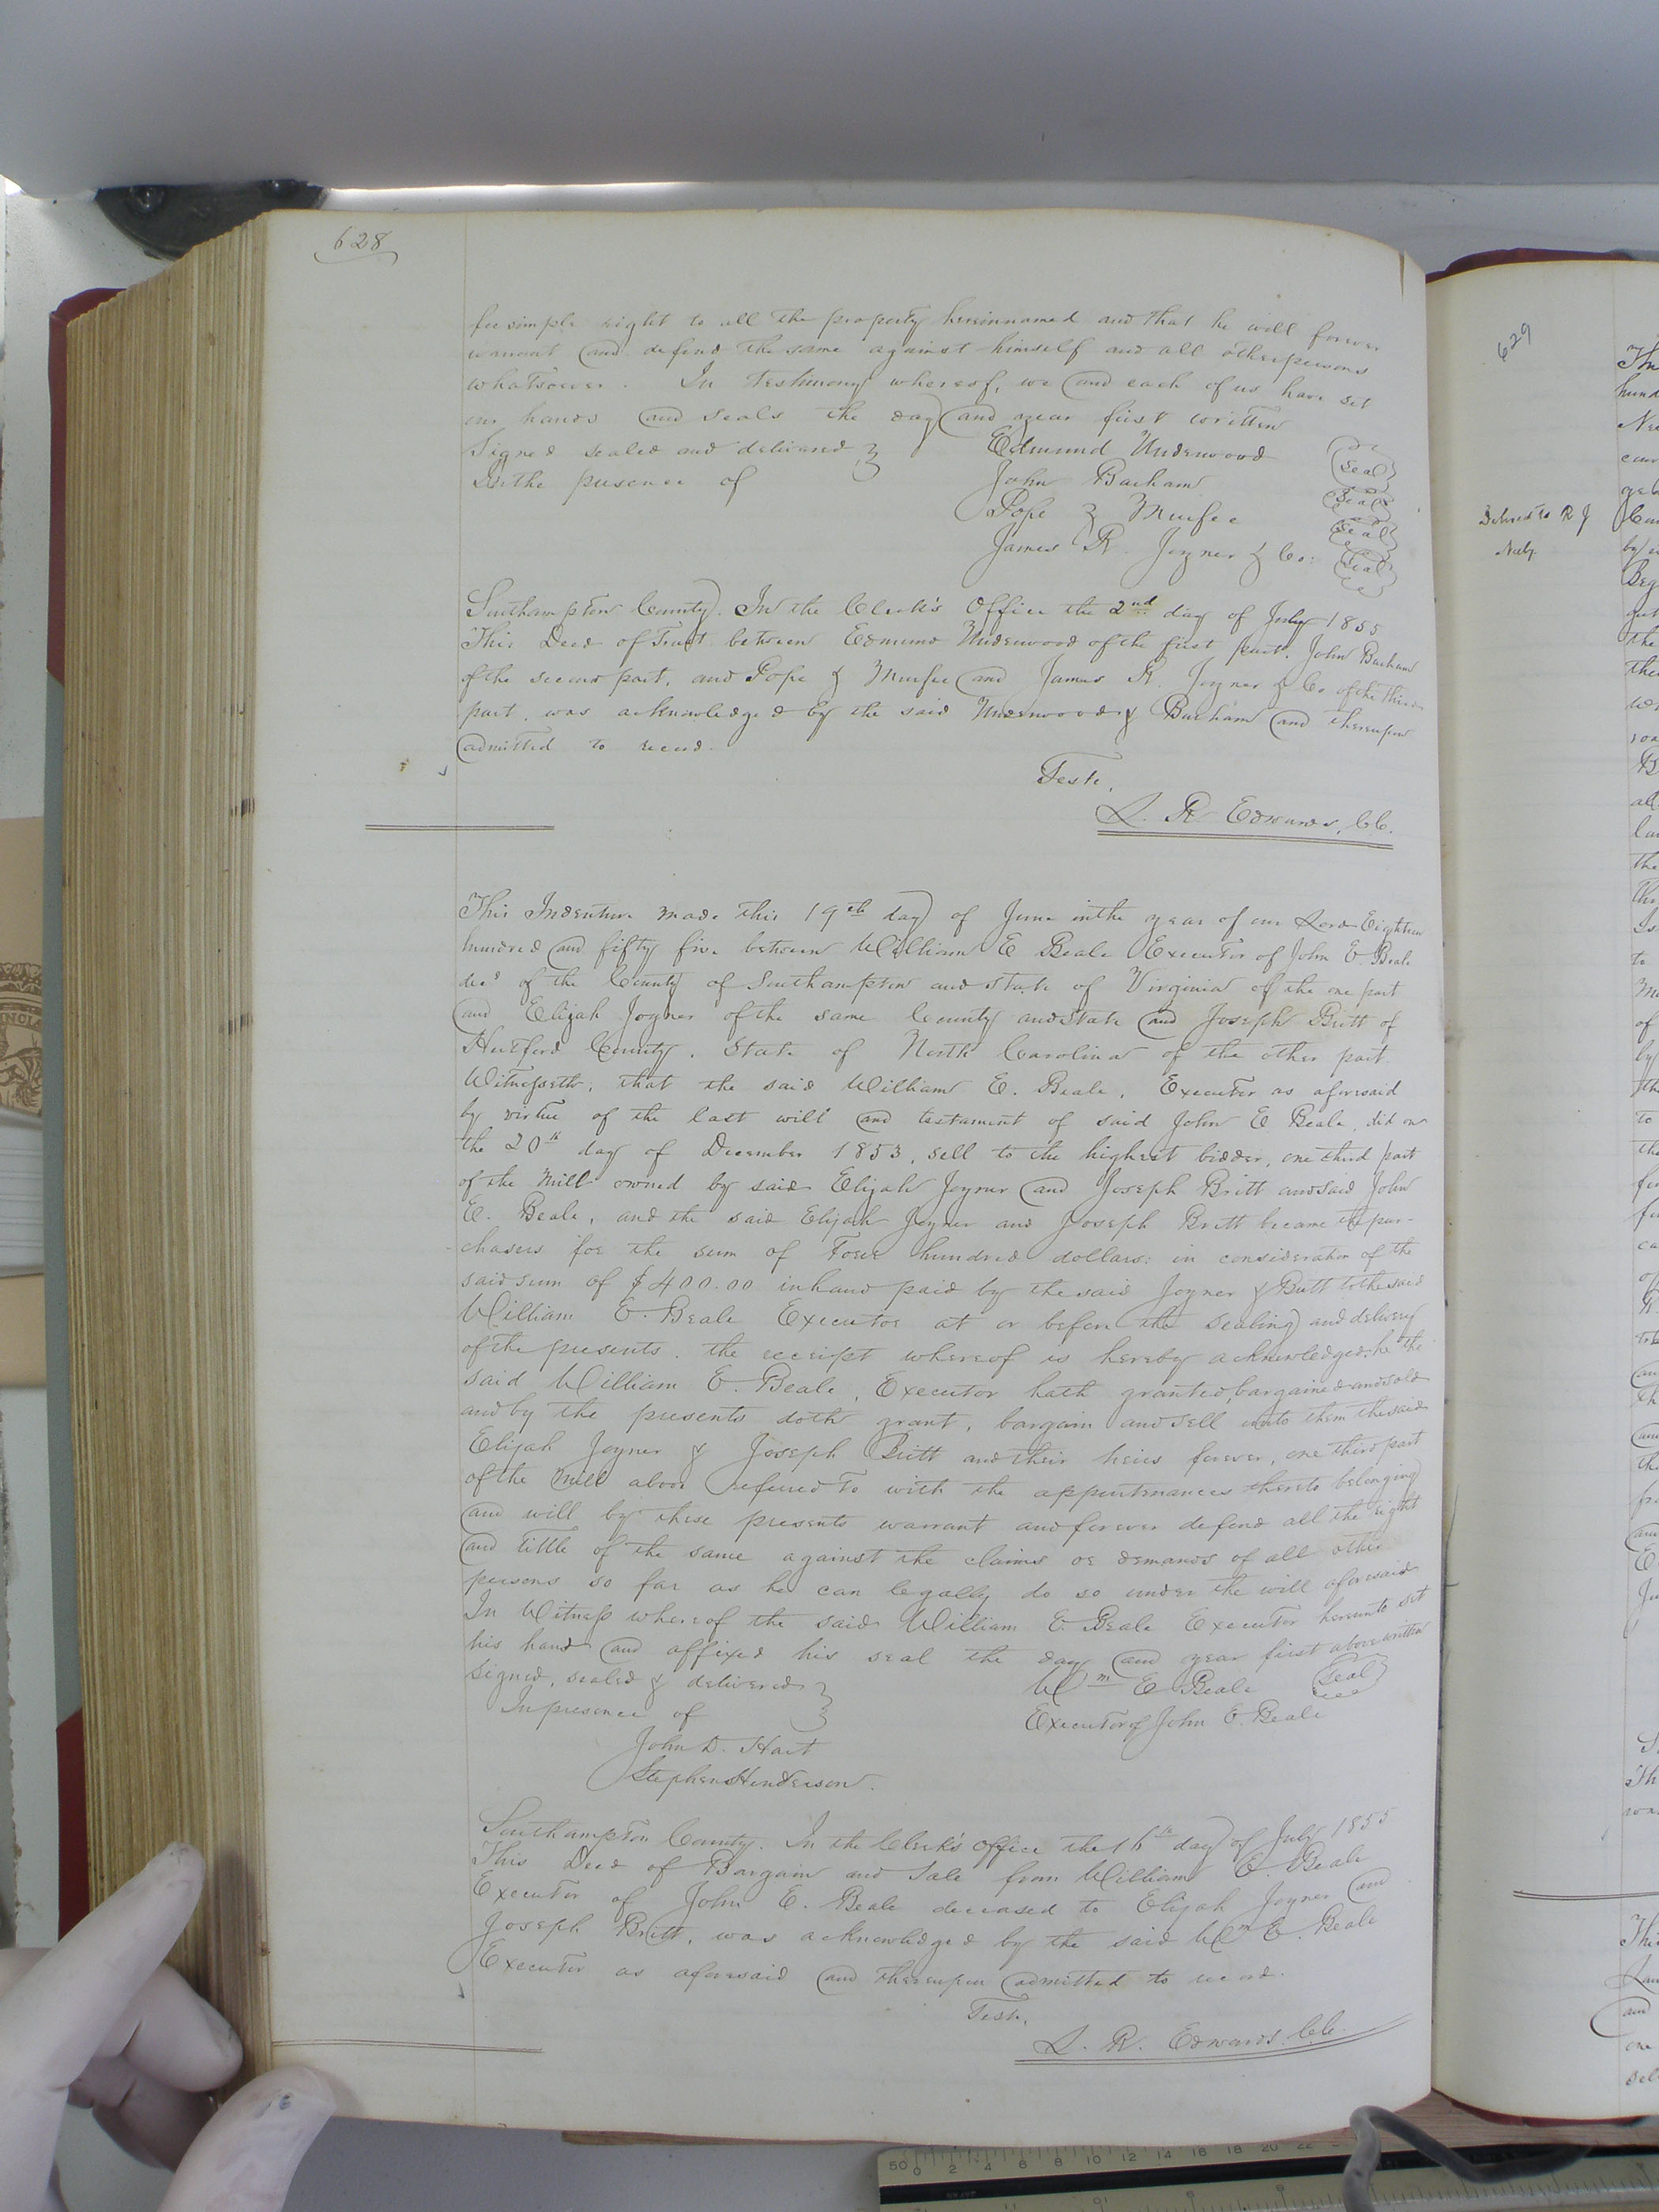 628
fee simple right to all the property herein named and that he will forever
warrant and defend the same against himself and all other persons
whatsoever. In testimony whereof, we and each of us have set
our hands and seals the day and year first written
Signed sealed and delivered } Edmund Underwood (Seal)
In the presence of John Barham (Seal)
Pope & Murfee (Seal)
James R. Joyner & Co: (Seal)
Southampton County. In the Clerk's Office the 2nd day of July 1855
This Deed of Trust between Edmund Underwood of the first part, John Barham
of the second part, and Pope & Murfee and James R. Joyner & Co of the third
part, was acknowledged by the said Underwood & Barham and thereupon
admitted to record.
Teste,
L. R. Edwards, CC.
This Indenture made this 19th day of June in the year of our Lord Eighteen
hundred and fifty five between William E Beale Executor of John E. Beale
decd of the County of Southampton and state of Virginia of the one part
and Elijah Joyner of the same County and State and Joseph Britt of
Hertford County, State of North Carolina of the other part.
Witnesseth, that the said William E. Beale, Executor as aforesaid
by virtue of the last will and testament of said John E Beale, did on
the 20th day of December 1853, sell to the highest bidder, one third part
of the Mill owned by said Elijah Joyner and Joseph Britt and said John
E. Beale, and the said Elijah Joyner and Joseph Britt became the pur-
chasers for the sum of Four hundred dollars: in consideration of the
said sum of $400.00 in hand paid by the said Joyner & Britt to the said
William E. Beale Executor at or before the sealing and delivery
of the presents. the receipt whereof is hereby acknowledged, he the
said William E. Beale, Executor hath granted, bargained and sold
and by the presents doth grant, bargain and sell unto them the said
Elijah Joyner & Joseph Britt and their heirs forever, one third part
of the Mill above referred to with the appurtenances thereto belonging
and will by these presents warrant and forever defend all the right
and tittle of the same against the claims or demands of all other
persons so far as he can legally do so under the will aforesaid
In Witness whereof the said William E. Beale Executor hereunto set
his hand and affixed his seal the day and year first above written
Signed, sealed & delivered } Wm E Beale (Seal)
In presence of Executor of John E. Beale
John D. Hart
Stephen Henderson.
Southampton County. In the Clerk's office the 16th day of July 1855
This Deed of Bargain and Sale from William E. Beale
Executor of John E. Beale deceased to Elijah Joyner and
Joseph Britt, was acknowledged by the said Wm E. Beale
Executor as aforesaid and thereupon admitted to record.
Teste,
L. R. Edwards. CC.
629
Delivered to R J